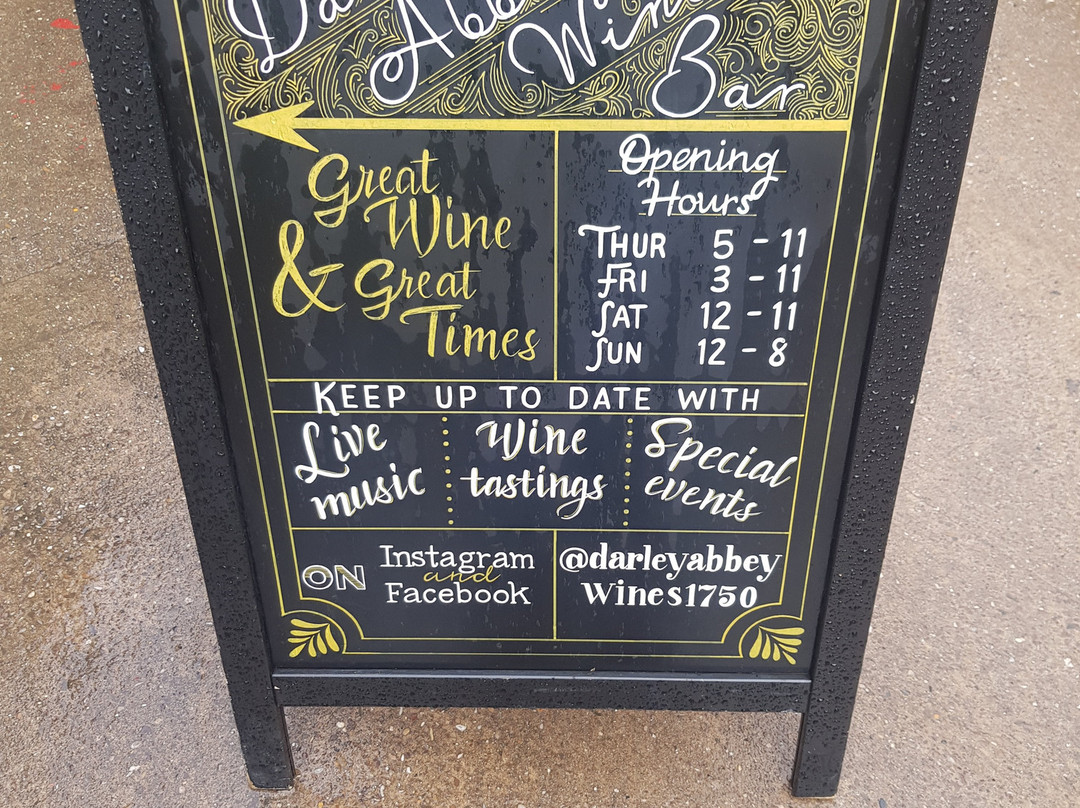 Wine
Bar
Great
Wine
& Great
Times
Opening
Hours
THUR 5 - 11
FRI 3 - 11
SAT 12 - 11
SUN 12 - 8
KEEP UP TO DATE WITH
Live
music
Wine
tastings
Special
events
ON Instagram
and
Facebook
@darleyabbey
Wines1750